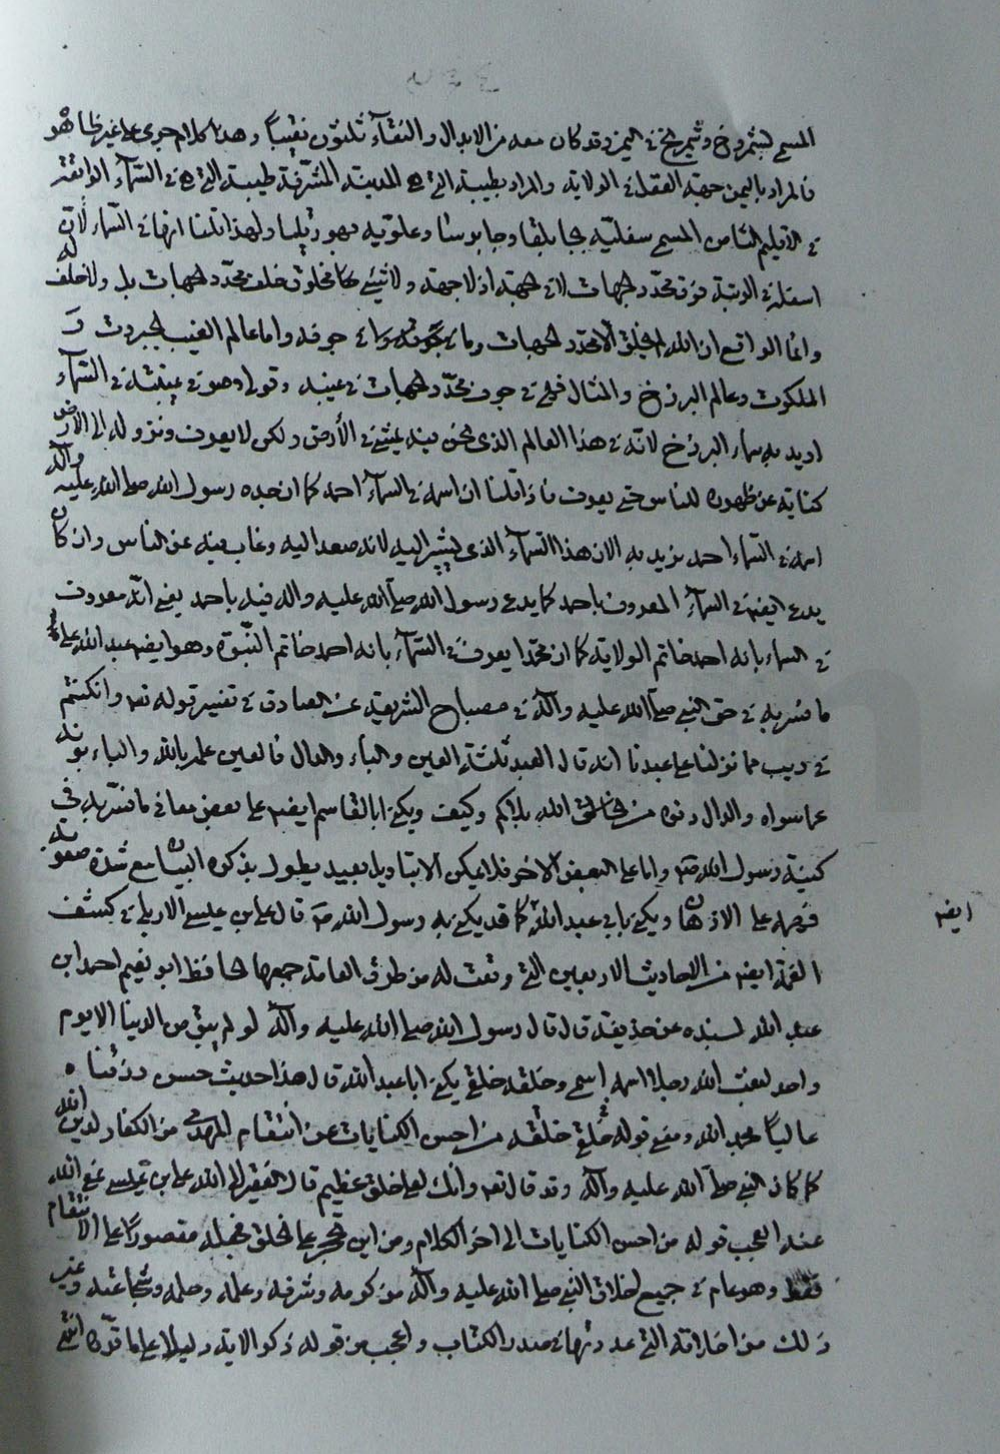 المسمى بشمروخ وشمريخ في اليمن وقد كان معه من الابدال والنقبآء ثلثون نقيبًا وهذا كلام جرى على غير ظاهره
فالمراد باليمن جهة العقل في الولاية والمراد بطيبة التي هي المدينة المشرفة طيبة التي هي في السمآء الواقعة
في الاقليم الثامن المسمى سفليّه بجابلقا وجابرسا وعلويه بهورقليا ولهذا قلنا انها في السماء لان
اسفله في الرتبة فوق محدّد الجهات لا في الجهة اذ لا جهة ولا شيئ مخلوق خلف محدّد الجهات بل ولا خلف له
وانما الواقع ان الله لم يخلق الا محدد الجهات وما في جوفه وراء جوفه واما عالم الغيب الجبروت و
الملكوت وعالم البرزخ والمثال فهي في جوف محدّد الجهات في غيبه وقولي وهو في غيبته في السمآء
اريد به سماء البرزخ لانّه في هذا العالم الذى نحن فيه يمشي في الأرض ولكن لا يعرف ونزوله الى الارض
كناية عن ظهوره للناس حتى يعرف فاذا قلنا ان اسمه في السمآء احمد كما ان جده رسول الله صلى الله عليه وآله
اسمه في السماء احمد نريد به الان هذا السمآء الذى يشير اليه لانه صعد اليه وغاب فيه عن الناس وان كان
يدعى ايضا في السمآء المعروف باحمد كما يدعى رسول الله صلى الله عليه واله فيه باحمد يعني انّه معروف
في السماء بانه احمد خاتم الولاية كما ان محمّدا يعرف في السمآء بانه احمد خاتم النّبوة وهو ايضا عبد الله على
ما فسّر به في حق النبي صلى الله عليه وآله في مصباح الشريعة عن الصادق في تفسير قوله تعه وان كنتم
في ريب مما نزلنا على عبدنا انه قال العبد ثلثة العين والبآء والدال فالعين علمه بالله والباء بونه
عما سواه والدال دنوه من الخالق الله بلا كم وكيف ويكنى ابا القاسم ايضا على بعض معاني ما فسّر به في
كنية رسول الله صه واما على البعض الآخر فلا يمكن الا بتاويل بعيد يطول بذكره البيان مع شدة صعوبة
فهمه على الاذهان ويكنى بابي عبد الله كما قد يكنى به رسول الله صه قال على بن عيسى الاربلي في كشف
ايضا
الغمة ايضا من الاحاديث الاربعين التي وقعت له من طرق العامة جمعها الحافظ ابو نعيم احمد ابن
عبد الله بسنده عن حذيفة قال قال رسول الله صلى الله عليه وآله لو لم يبق من الدنيا الا يوم
واحد لبعث الله رجلا اسمه اسمي وخلقه خلقي يكنى ابا عبد الله قال هذا حديث حسن رزقناه
عاليًا بحمد الله ومعنى قوله خُلقه خلقي من احسن الكنايات عن انتقام المهدى من الكفار لدين الله
كما كان النبي صلى الله عليه وآله وقد قال تعه وانك لعلى خلق عظيم قال الفقير الى الله على بن عيسى عفى الله
عنه العجب قوله من احسن الكنايات الى اخر الكلام ومن اين تحجر على الخلق فجعله مقصورًا على الانتقام
فقط وهو عام في جميع اخلاق النبي صلى الله عليه وآله من كرمه وشرفه وعلمه وحلمه وشجاعته وغير
ذلك من اخلاقه التي عددتها في صدر الكتاب واعجب من قوله ذكر الاية دليلا على ما قرّره انتهى